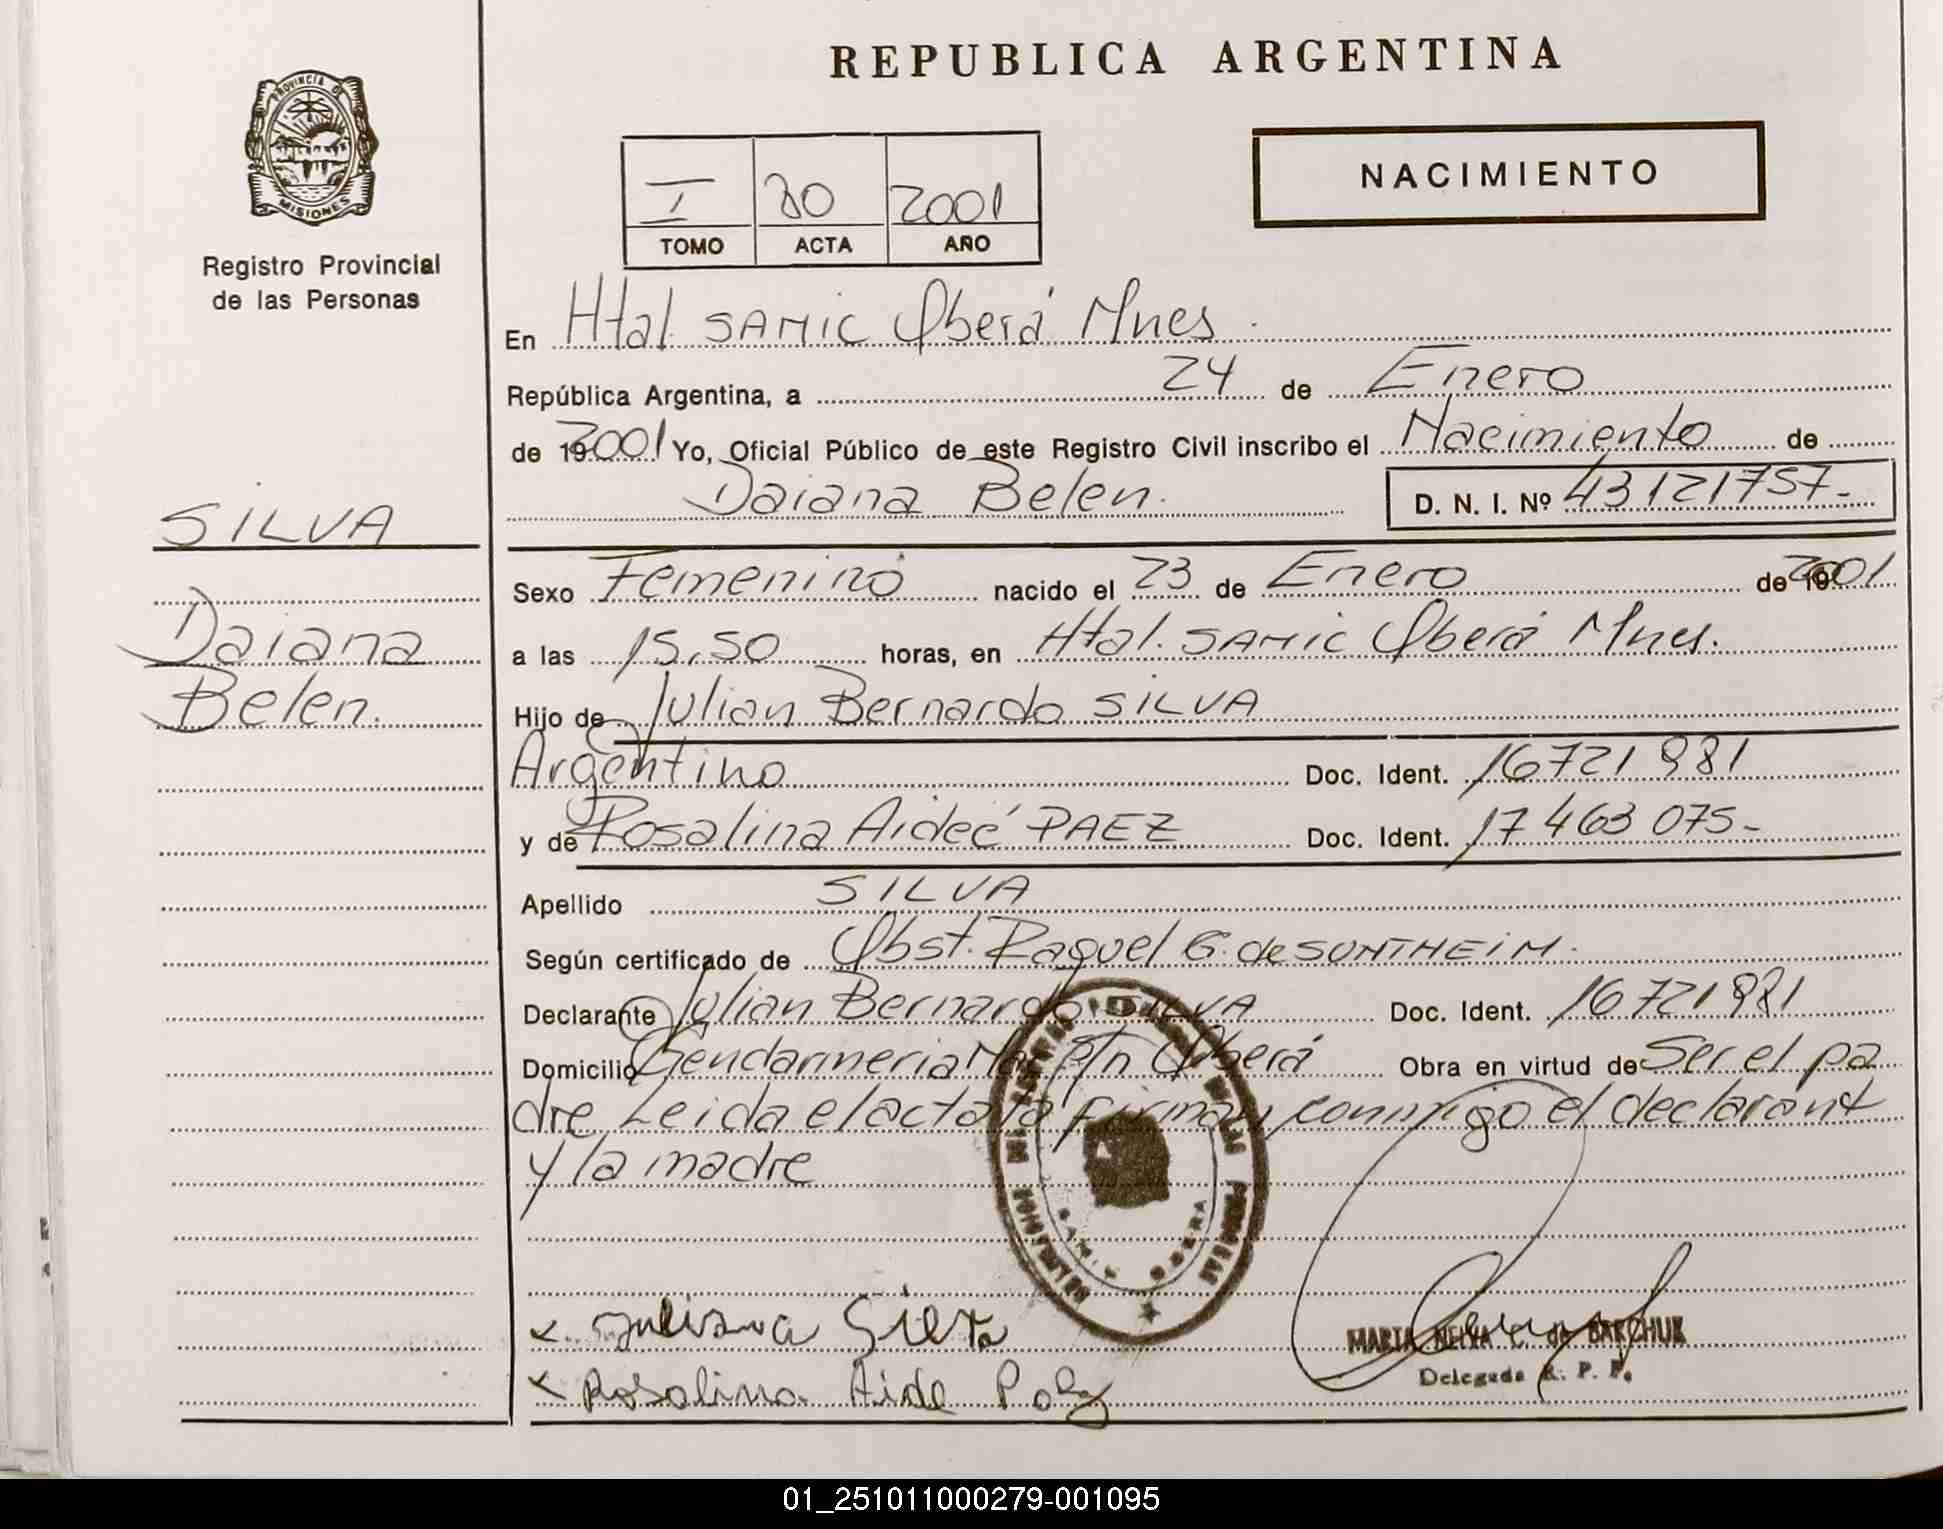 REPUBLICA ARGENTINA
PROVINCIA DE MISIONES
Registro Provincial
de las Personas
NACIMIENTO
I 80 2001
TOMO ACTA AÑO
En Htal. SAMIC Oberá Mnes.
República Argentina, a 24 de Enero
de 19 2001 Yo, Oficial Público de este Registro Civil inscribo el Nacimiento de
Daiana Belen. D. N. I. Nº 43121757.-
SILVA
Daiana
Belen.
Sexo Femenino nacido el 23 de Enero de 19 2001
a las 15,50 horas, en Htal. SAMIC Oberá Mnes.
Hijo de Julian Bernardo SILVA
Argentino Doc. Ident. 16721981
y de Rosalina Aideé PAEZ Doc. Ident. 17463075-
Apellido SILVA
Según certificado de Obst. Raquel G. de SONTHEIM.
Declarante Julian Bernardo SILVA Doc. Ident. 16721981
Domicilio Gendarmeria Nac. Oberá Obra en virtud de Ser el pa
dre Leida el acta la firman conmigo el declarant
y la madre
OBERA
Rosalina Aide
MARIA NELVA C. de BARCHUK
Delegada R. P. P.
01_251011000279-001095